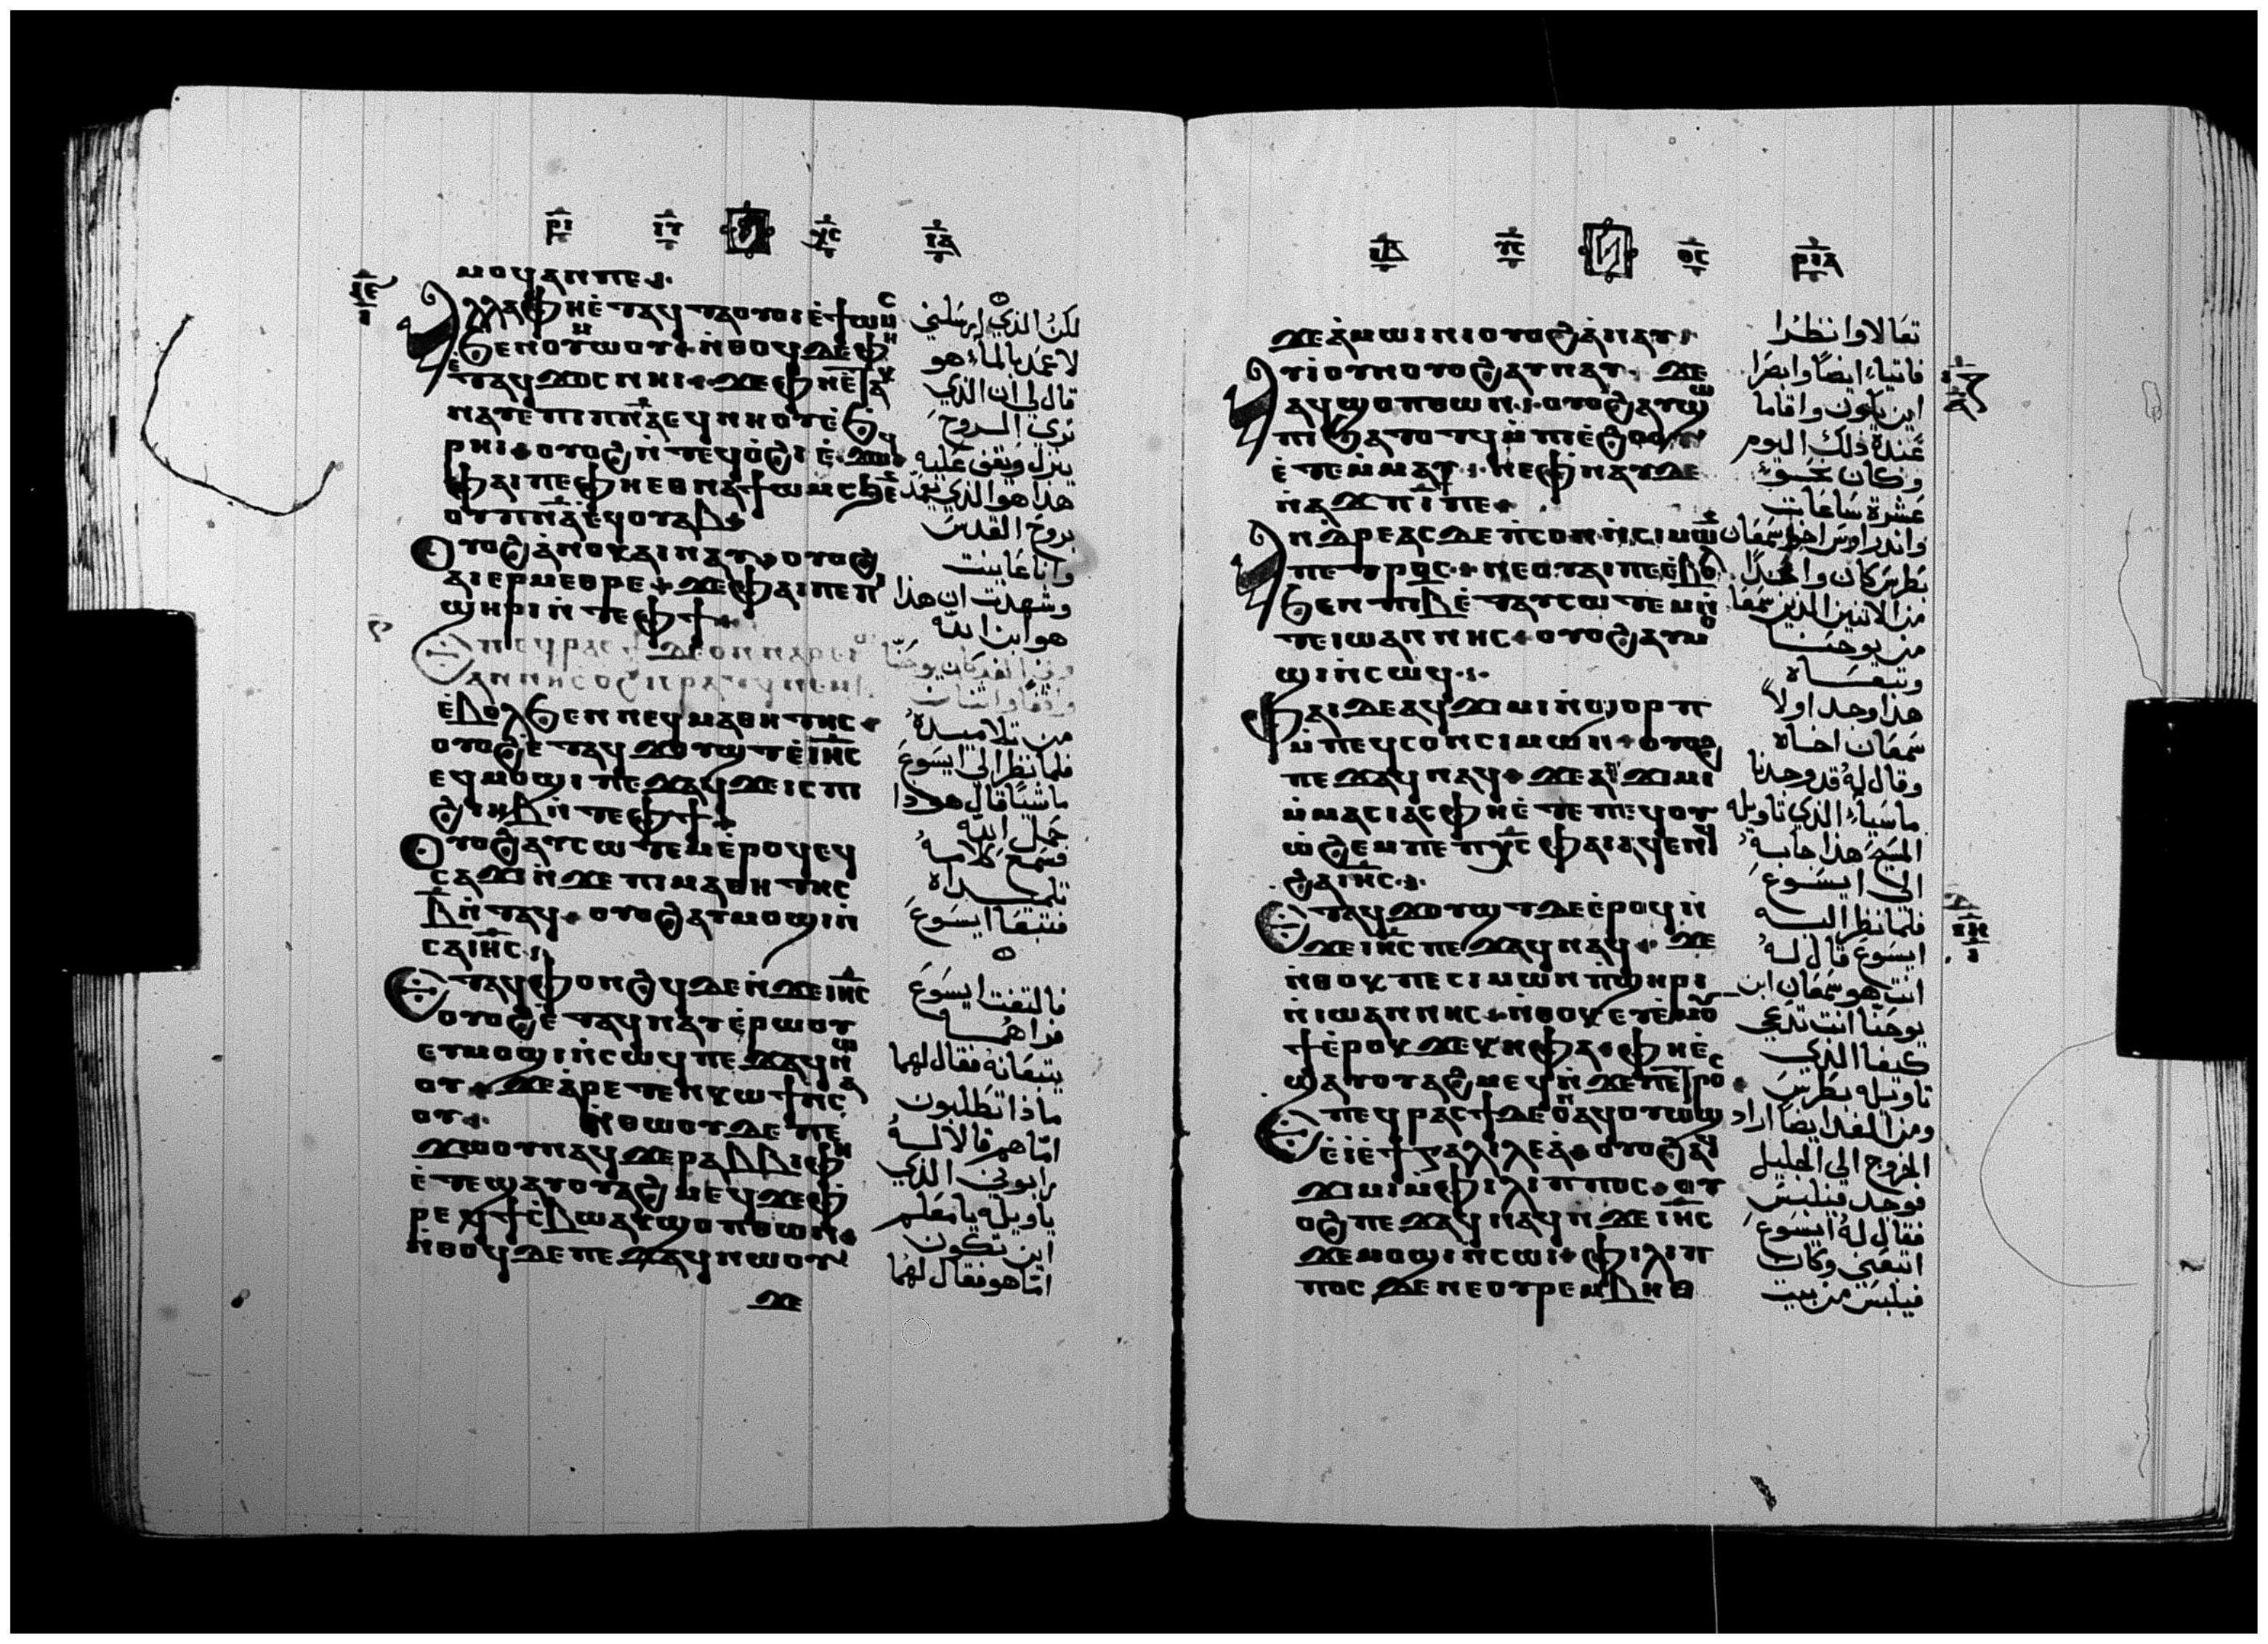 ⲣⲓ ⲓⲥ ⲭⲥ ⲓⲁ
ⲙⲟϥ ⲁⲛ ⲡⲉ
ⲁⲗⲗⲁ ⲫⲏ ⲉ̀ⲧⲁϥⲧⲁⲟⲩⲟⲓ ⲉ̀ϯⲱⲙⲥ
ϧⲉⲛ ⲟⲩⲙⲱⲟⲩ ⲛ̀ⲑⲟϥ ⲡⲉ ⲫⲏ
ⲉ̀ⲧⲁϥϫⲟⲥ ⲛⲏⲓ ϫⲉ ⲫⲏ ⲉ̀ⲧⲉⲕ
ⲛⲁⲩ ⲉ̀ⲡⲓⲡⲛⲁ ⲉϥⲛⲏⲟⲩ ⲉ̀ϧ
ⲣⲏⲓ ⲟⲩⲟϩ ⲛ̀ⲧⲉϥⲟ̀ϩⲓ ⲉ̀ϫⲱϥ
ⲫⲁⲓ ⲡⲉ ⲫⲏ ⲉⲑⲛⲁϯⲱⲙⲥ ϧⲉⲛ
ⲟⲩⲡⲛⲁ ⲉϥⲟⲩⲁⲃ
ⲟⲩⲟϩ ⲁ̀ⲛⲟⲕ ⲁⲓⲛⲁⲩ ⲟⲩⲟϩ
ⲁⲓⲉⲣⲙⲉⲑⲣⲉ ϫⲉ ⲫⲁⲓ ⲡⲉ ⲡ
ϣⲏⲣⲓ ⲛ̀ⲧⲉ ⲫϯ
ⲁⲛⲛⲏⲥ ⲟϩⲓ ⲉⲣⲁⲧϥ ⲛⲉⲙ
ⲉ̀ⲃⲟⲗ ϧⲉⲛ ⲛⲉϥⲙⲁⲑⲏⲧⲏⲥ
ⲟⲩⲟϩ ⲉ̀ⲧⲁϥϫⲟⲩϣⲧ ⲉ̀ⲓⲏⲥ
ⲉϥⲙⲟϣⲓ ⲡⲉϫⲁϥ ϫⲉ ⲓⲥ ⲡⲓ
ϩⲓⲏⲃ ⲛ̀ⲧⲉ ⲫϯ
ⲟⲩⲟϩ ⲁⲩⲥⲱⲧⲉⲙ ⲉ̀ⲣⲟϥ ⲉϥ
ⲥⲁϫⲓ ⲛ̀ϫⲉ ⲡⲓⲙⲁⲑⲏⲧⲏⲥ
ⲃ̄ ⲛ̀ⲧⲁϥ ⲟⲩⲟϩ ⲁⲩⲙⲟϣⲓ ⲛ̀
ⲥⲁ ⲓⲏⲥ
ⲉⲧⲁϥⲫⲟⲛϩϥ ⲇⲉ ⲛ̀ϫⲉ ⲓⲏⲥ
ⲟⲩⲟϩ ⲉ̀ⲧⲁϥⲛⲁⲩ ⲉ̀ⲣⲱⲟⲩ
ⲉⲩⲙⲟϣⲓ ⲛ̀ⲥⲱϥ ⲡⲉϫⲁϥ ⲛⲱ
ⲟⲩ ϫⲉ ⲁ̀ⲣⲉⲧⲉⲛⲕⲱϯ ⲛ̀ⲥⲁ
ⲟⲩ ⲛ̀ⲑⲱⲟⲩ ⲇⲉ ⲡⲉ
ϫⲱⲟⲩ ⲛⲁϥ ϫⲉ ⲣⲁⲃⲃⲓ ⲫⲏ
ⲉ̀ⲧⲉϣⲁⲩⲟⲩⲁϩⲙⲉϥ ϫⲉ ⲫ
ⲣⲉϥϯⲥ̀ⲃⲱ ⲁⲕϣⲟⲡ ⲑⲱⲛ
ⲛ̀ⲑⲟϥ ⲇⲉ ⲡⲉϫⲁϥ ⲛⲱⲟⲩ
ϫⲉ
لكن الذي ارسلني
لاعمد بالماء هو
قال لي ان الذي
ترى الروح
ينزل ويقف عليه
هذا هو الذي يعمد
بروح القدس
وانا عاينت
وشهدت ان هذا
هو ابن الله
من تلاميذه
فلما نظر الي ايسوع
ماشيًا قال هوذا
حمل الله
فسمع كلامه
تلميذاه
فتبعا ايسوع
فالتفت ايسوع
فراهما
يتبعانه فقال لهما
ماذا تطلبون
امّا هم قالا له
رابوني الذي
تاويله يا معلم
اين تكون
امّا هو فقال لهما
ⲣⲓⲁ
ϫⲉ ⲁ̀ⲙⲱⲓⲛⲓ ⲟⲩⲟϩ ⲁ̀ⲛⲁⲩ
ⲁⲩⲓ̀ ⲟⲩⲛ ⲟⲩⲟϩ ⲁⲩⲛⲁⲩ ϫⲉ
ⲁϥϣⲟⲡ ⲑⲱⲛ ⲟⲩⲟϩ ⲁⲩϣⲱ
ⲡⲓ ϧⲁⲧⲟⲧϥ ⲙ̀ⲡⲓⲉ̀ϩⲟⲟⲩ
ⲉ̀ⲧⲉⲙ̀ⲙⲁⲩ ⲛⲉ ⲫⲛⲁⲩ ⲇⲉ
ⲛ̀ⲁϫⲡ ⲓ̄ ⲡⲉ
ⲁⲛⲇⲣⲉⲁⲥ ⲇⲉ ⲡ̀ⲥⲟⲛ ⲛ̀ⲥⲓⲙⲱⲛ
ⲡⲉⲧⲣⲟⲥ ⲛⲉ ⲟⲩⲁⲓ ⲡⲉ ⲉ̀ⲃⲟⲗ
ϧⲉⲛ ⲡⲓⲃ̄ ⲉ̀ⲧⲁⲩⲥⲱⲧⲉⲙ ⲛ̀
ⲧⲉⲓⲱⲁⲛⲛⲏⲥ ⲟⲩⲟϩ ⲁⲩⲙⲟ
ϣⲓ ⲛ̀ⲥⲱϥ
ⲫⲁⲓ ⲇⲉ ⲁϥϫⲓⲙⲓ ⲛ̀ϣⲟⲣⲡ
ⲙ̀ⲡⲉϥⲥⲟⲛ ⲥⲓⲙⲱⲛ ⲟⲩⲟϩ
ⲡⲉϫⲁϥ ⲛⲁϥ ϫⲉ ⲁⲛϫⲓⲙⲓ
ⲙ̀ⲙⲁⲥⲓⲁⲥ ⲫⲏ ⲉ̀ⲧⲉ ⲡⲉϥⲟⲩ
ⲱ̀ϩⲉⲙ ⲡⲉ ⲡⲭⲥ ⲫⲁⲓ ⲁϥⲉⲛϥ
ϩⲁ ⲓⲏⲥ
ⲉⲧⲁϥϫⲟⲩϣⲧ ⲇⲉ ⲉ̀ⲣⲟϥ ⲛ̀
ϫⲉ ⲓⲏⲥ ⲡⲉϫⲁϥ ⲛⲁϥ ϫⲉ
ⲛ̀ⲑⲟⲕ ⲡⲉ ⲥⲓⲙⲱⲛ ⲡ̀ϣⲏⲣⲓ
ⲛ̀ⲓⲱⲁⲛⲛⲏⲥ ⲛ̀ⲑⲟⲕ ⲉⲩⲉ̀ⲙⲟⲩ
ϯ ⲉ̀ⲣⲟⲕ ϫⲉ ⲕⲏⲫⲁ ⲫⲏ ⲉ̀
ϣⲁⲩⲟⲩⲁϩⲙⲉϥ ϫⲉ ⲡⲉⲧⲣⲟⲥ
ⲉⲡⲉϥⲣⲁⲥϯ ⲇⲉ ⲟⲛ ⲁϥⲟⲩⲱϣ
ⲉ̀ⲓ̀ ⲉ̀ϯⲅⲁⲗⲓⲗⲉⲁ̀ ⲟⲩⲟϩ ⲁϥ
ϫⲓⲙⲓ ⲙ̀ⲫⲓⲗⲓⲡⲡⲟⲥ ⲟⲩ
ⲟϩ ⲡⲉϫⲁϥ ⲛⲁϥ ⲛ̀ϫⲉ ⲓⲏⲥ
ϫⲉ ⲙⲟϣⲓ ⲛ̀ⲥⲱⲓ ⲫⲓⲗⲓⲡ
ⲡⲟⲥ ⲇⲉ ⲛⲉ ⲟⲩⲣⲉⲙⲃⲏⲑ
تعالا وانظرا
فاتيا ايضًا وابصرا
اين يكون واقاما
عنده ذلك اليوم
وكان نحو
عشرة ساعات
واندراوس اخو سمعان
بطرس كان واحدًا
من الاثنين الذين سمعا
من يوحنا
وتبعاه
هذا وجد اولًا
سمعان اخاه
وقال له قد وجدنا
ماسيا الذي تاويله
المسيح هذا جا به
الى ايسوع
فلما نظر اليه
ايسوع قال له
انت هو سمعان ابن
يوحنا انت تدعى
كيفا الذي
تاويله بطرس
ومن الغد ايضًا اراد
الخروج الي الجليل
فوجد فيلبس
فقال له ايسوع
اتبعني وكان
فيلبس من بيت